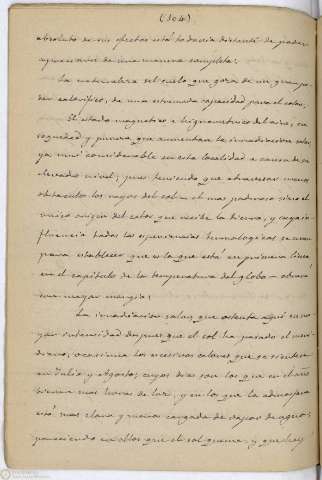 (104)
absoluto de sus efectos está todavia distante de poder
apreciarse de una manera completa:
La naturaleza del suelo que goza de un gran po-
der calorífico, de una estremada capacidad para el calor,
El estado magnetico e higrometrico del aire, su
sequedad y pureza que aumentan la irradiacion solar,
ya muy considerable en esta localidad a causa de su
elevado nivel; pues teniendo que atravesar menos
obstaculos los rayos del sol — el mas poderoso sino el
unico origen del calor que recibe la tierra, y cuya in-
fluencia todas las esperiencias termologicas se unen
para establecer que es la que está en primera linea
en el capitulo de la temperatura del globo — obran
con mayor energia;
La irradiacion solar, que ostenta aqui su ma-
yor intensidad despues que el sol ha pasado el meri-
diano, ocasiona los escesivos calores que se sienten
en Julio y Agosto; cuyos dias son los que en el año
tienen mas horas de luz, y en los que la atmosfera
está mas clara y menos cargada de vapor de agua;
pareciendo en ellos que el sol quema, y que hay